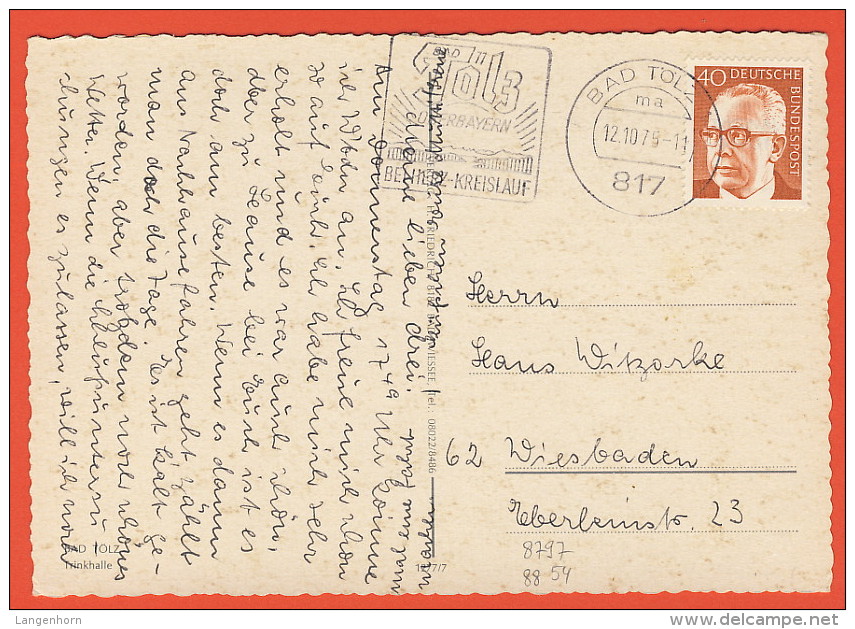 Meine lieben drei!
Am Donnerstag 17.49 Uhr komme
ich schon an. Ich freue mich schon
so auf Euch. Ich habe mich sehr
erholt und es war auch schön,
aber zu Hause bei Euch ist es
doch am besten. Wenn es dann
aus Nachhause fahren geht zählt
man doch die Tage. Es ist kalt ge-
worden, aber trotzdem noch schönes
Wetter. Wenn die
es zulassen, will ich noch
BAD TÖLZ
OBERBAYERN
BEI HERZ-KREISLAUF
BAD TÖLZ
ma
12.10.7
-11
817
40 DEUTSCHE
BUNDESPOST
Herrn
Hans Witzorke
62 Wiesbaden
Eberleinstr. 23
8797
88 54
BAD TÖLZ
Trinkhalle
FRIEDRICH, 8182 BAD WIESSEE, Tel.: 08022/8486
12/7/7
Langenhorn
www.delcampe.net